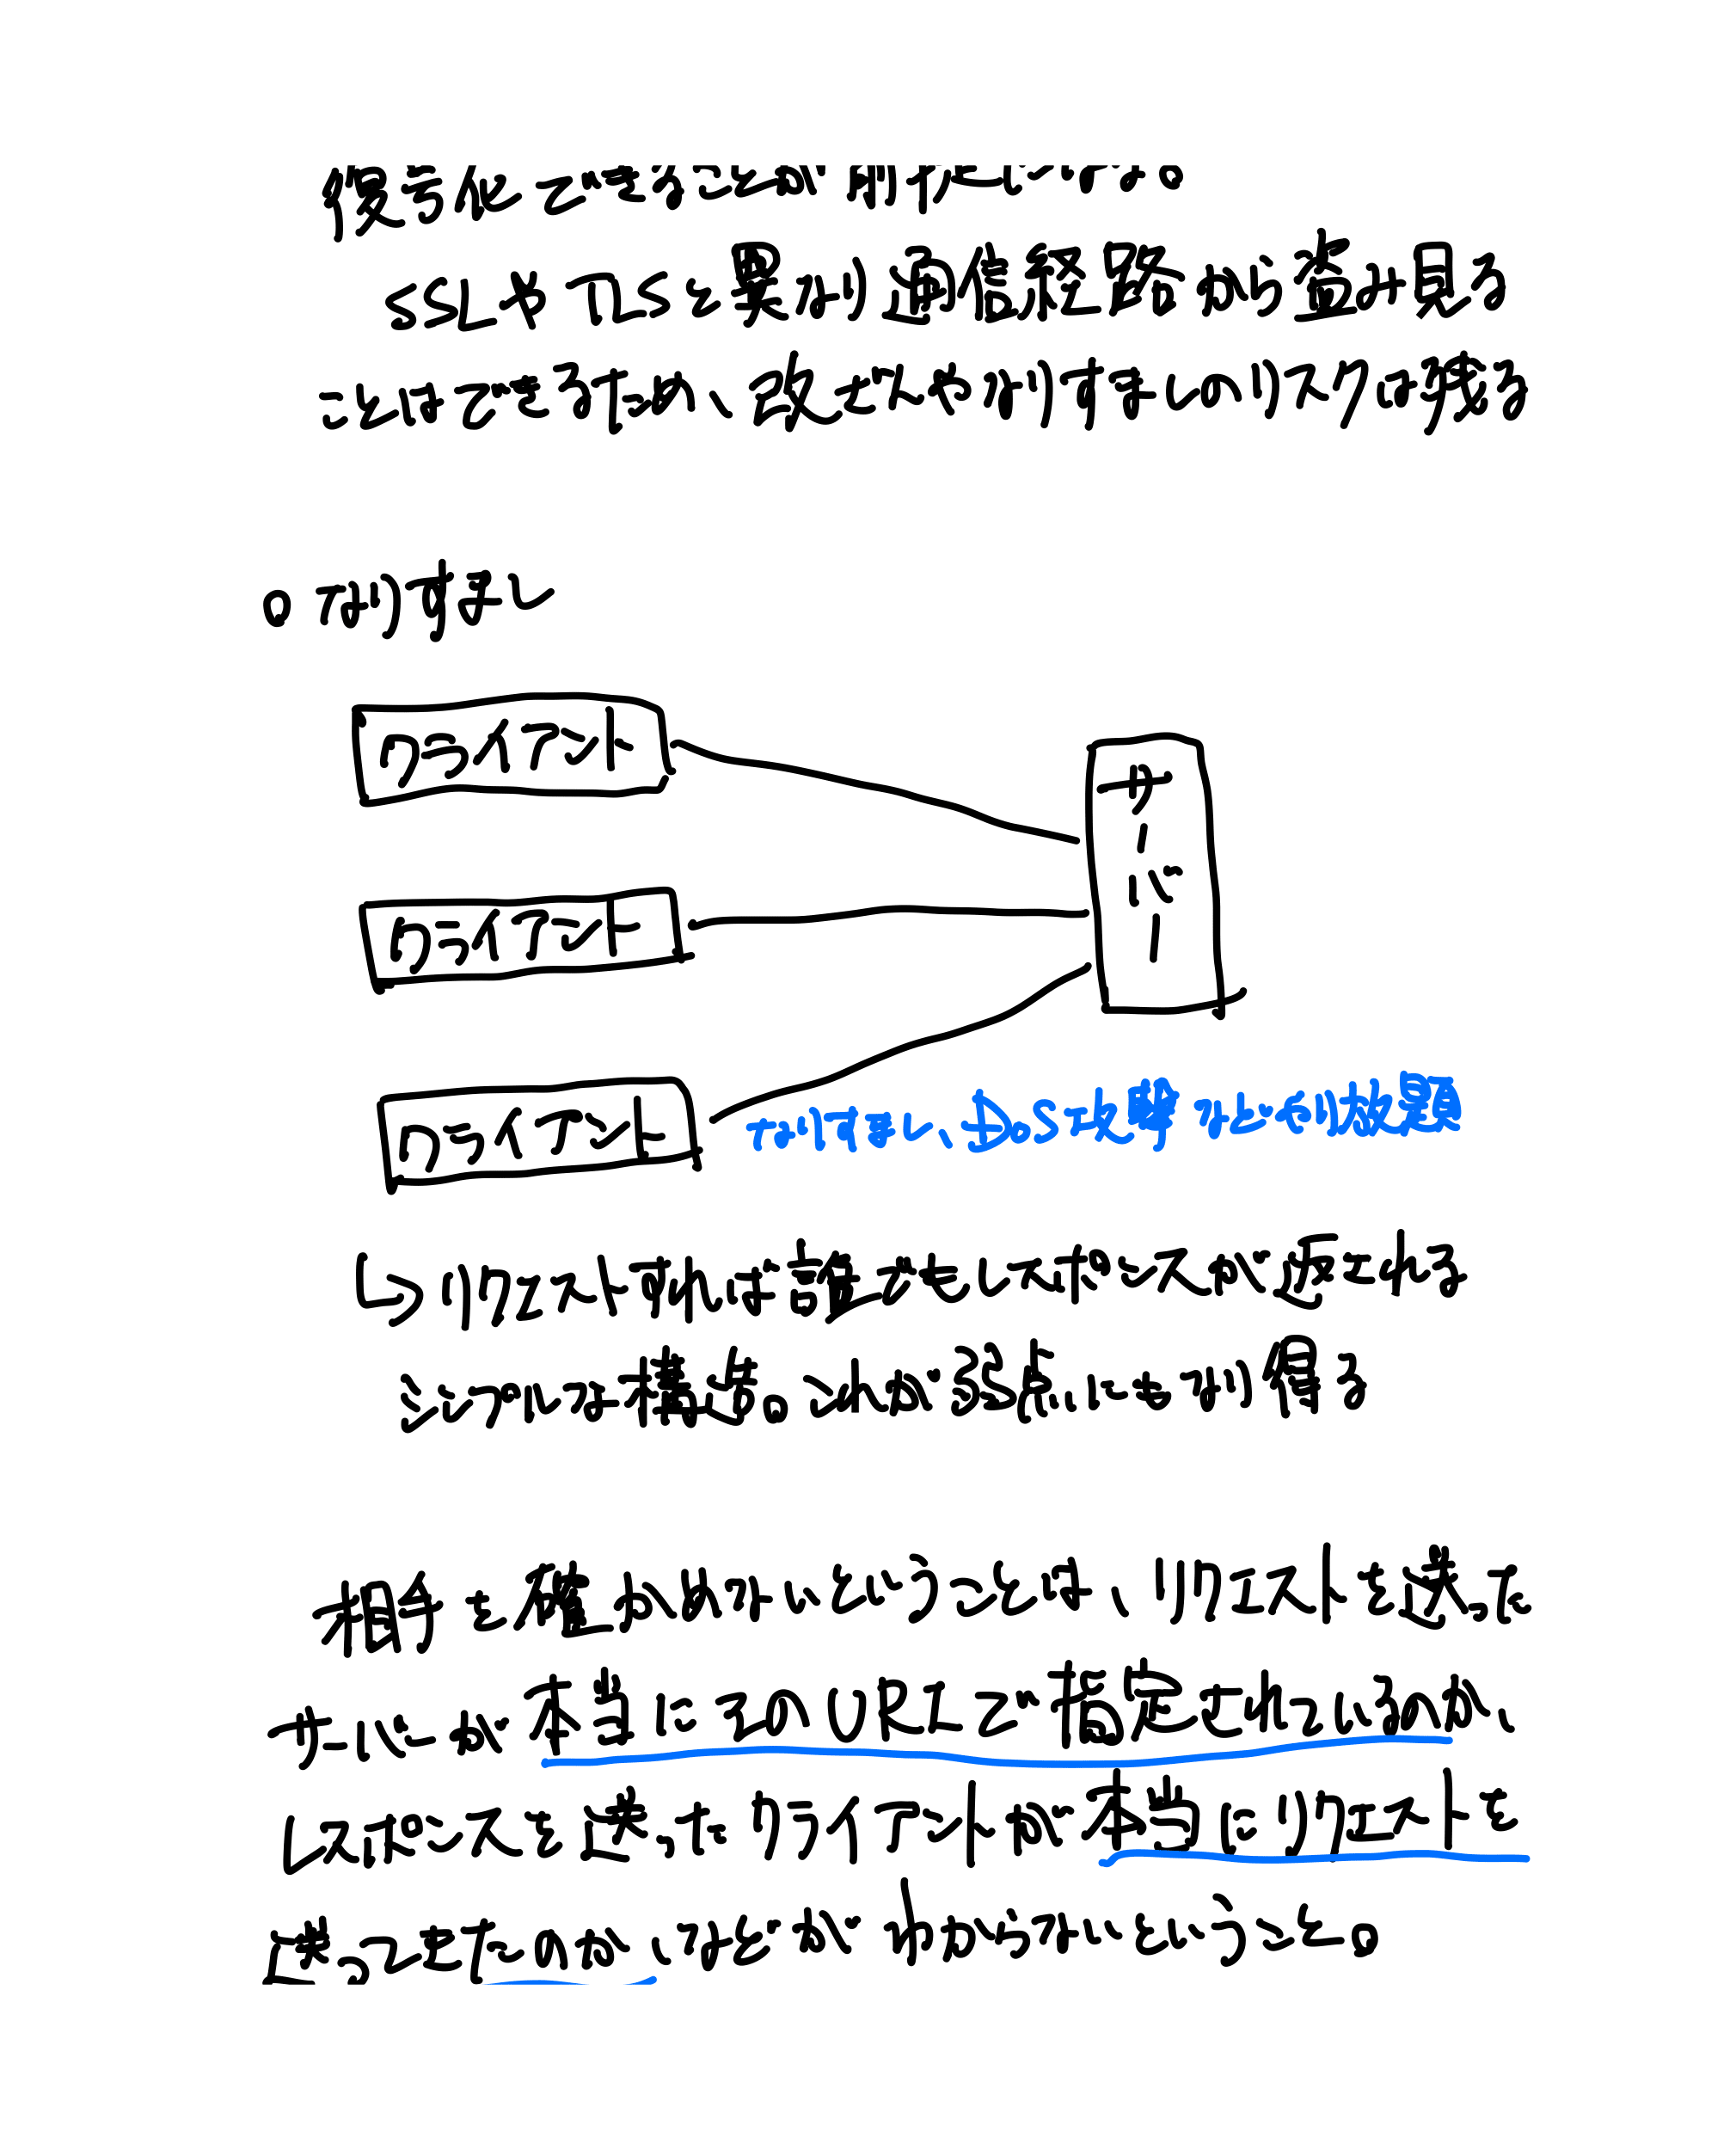 復号化できることが前提になる。
SSLやTLSと異なり通信経路から盗み見る
ことはできるため、改ざんやなりすましのリスクは残る
○なりすまし
クライアント
サーバー
クライアント
クライアント
なりすまし、DoS攻撃などで攻撃
↳リクエストすれば誰でもレスポンスが返される
シンプルな構造。これが弱点にもなり得る
相手を確かめないということは、リクエストを送った
サーバが本当にそのURLで指定されているのか、
レスポンスを送ったクライアントが本当にリクエストを
送ってきたのか、などがわからないということ。